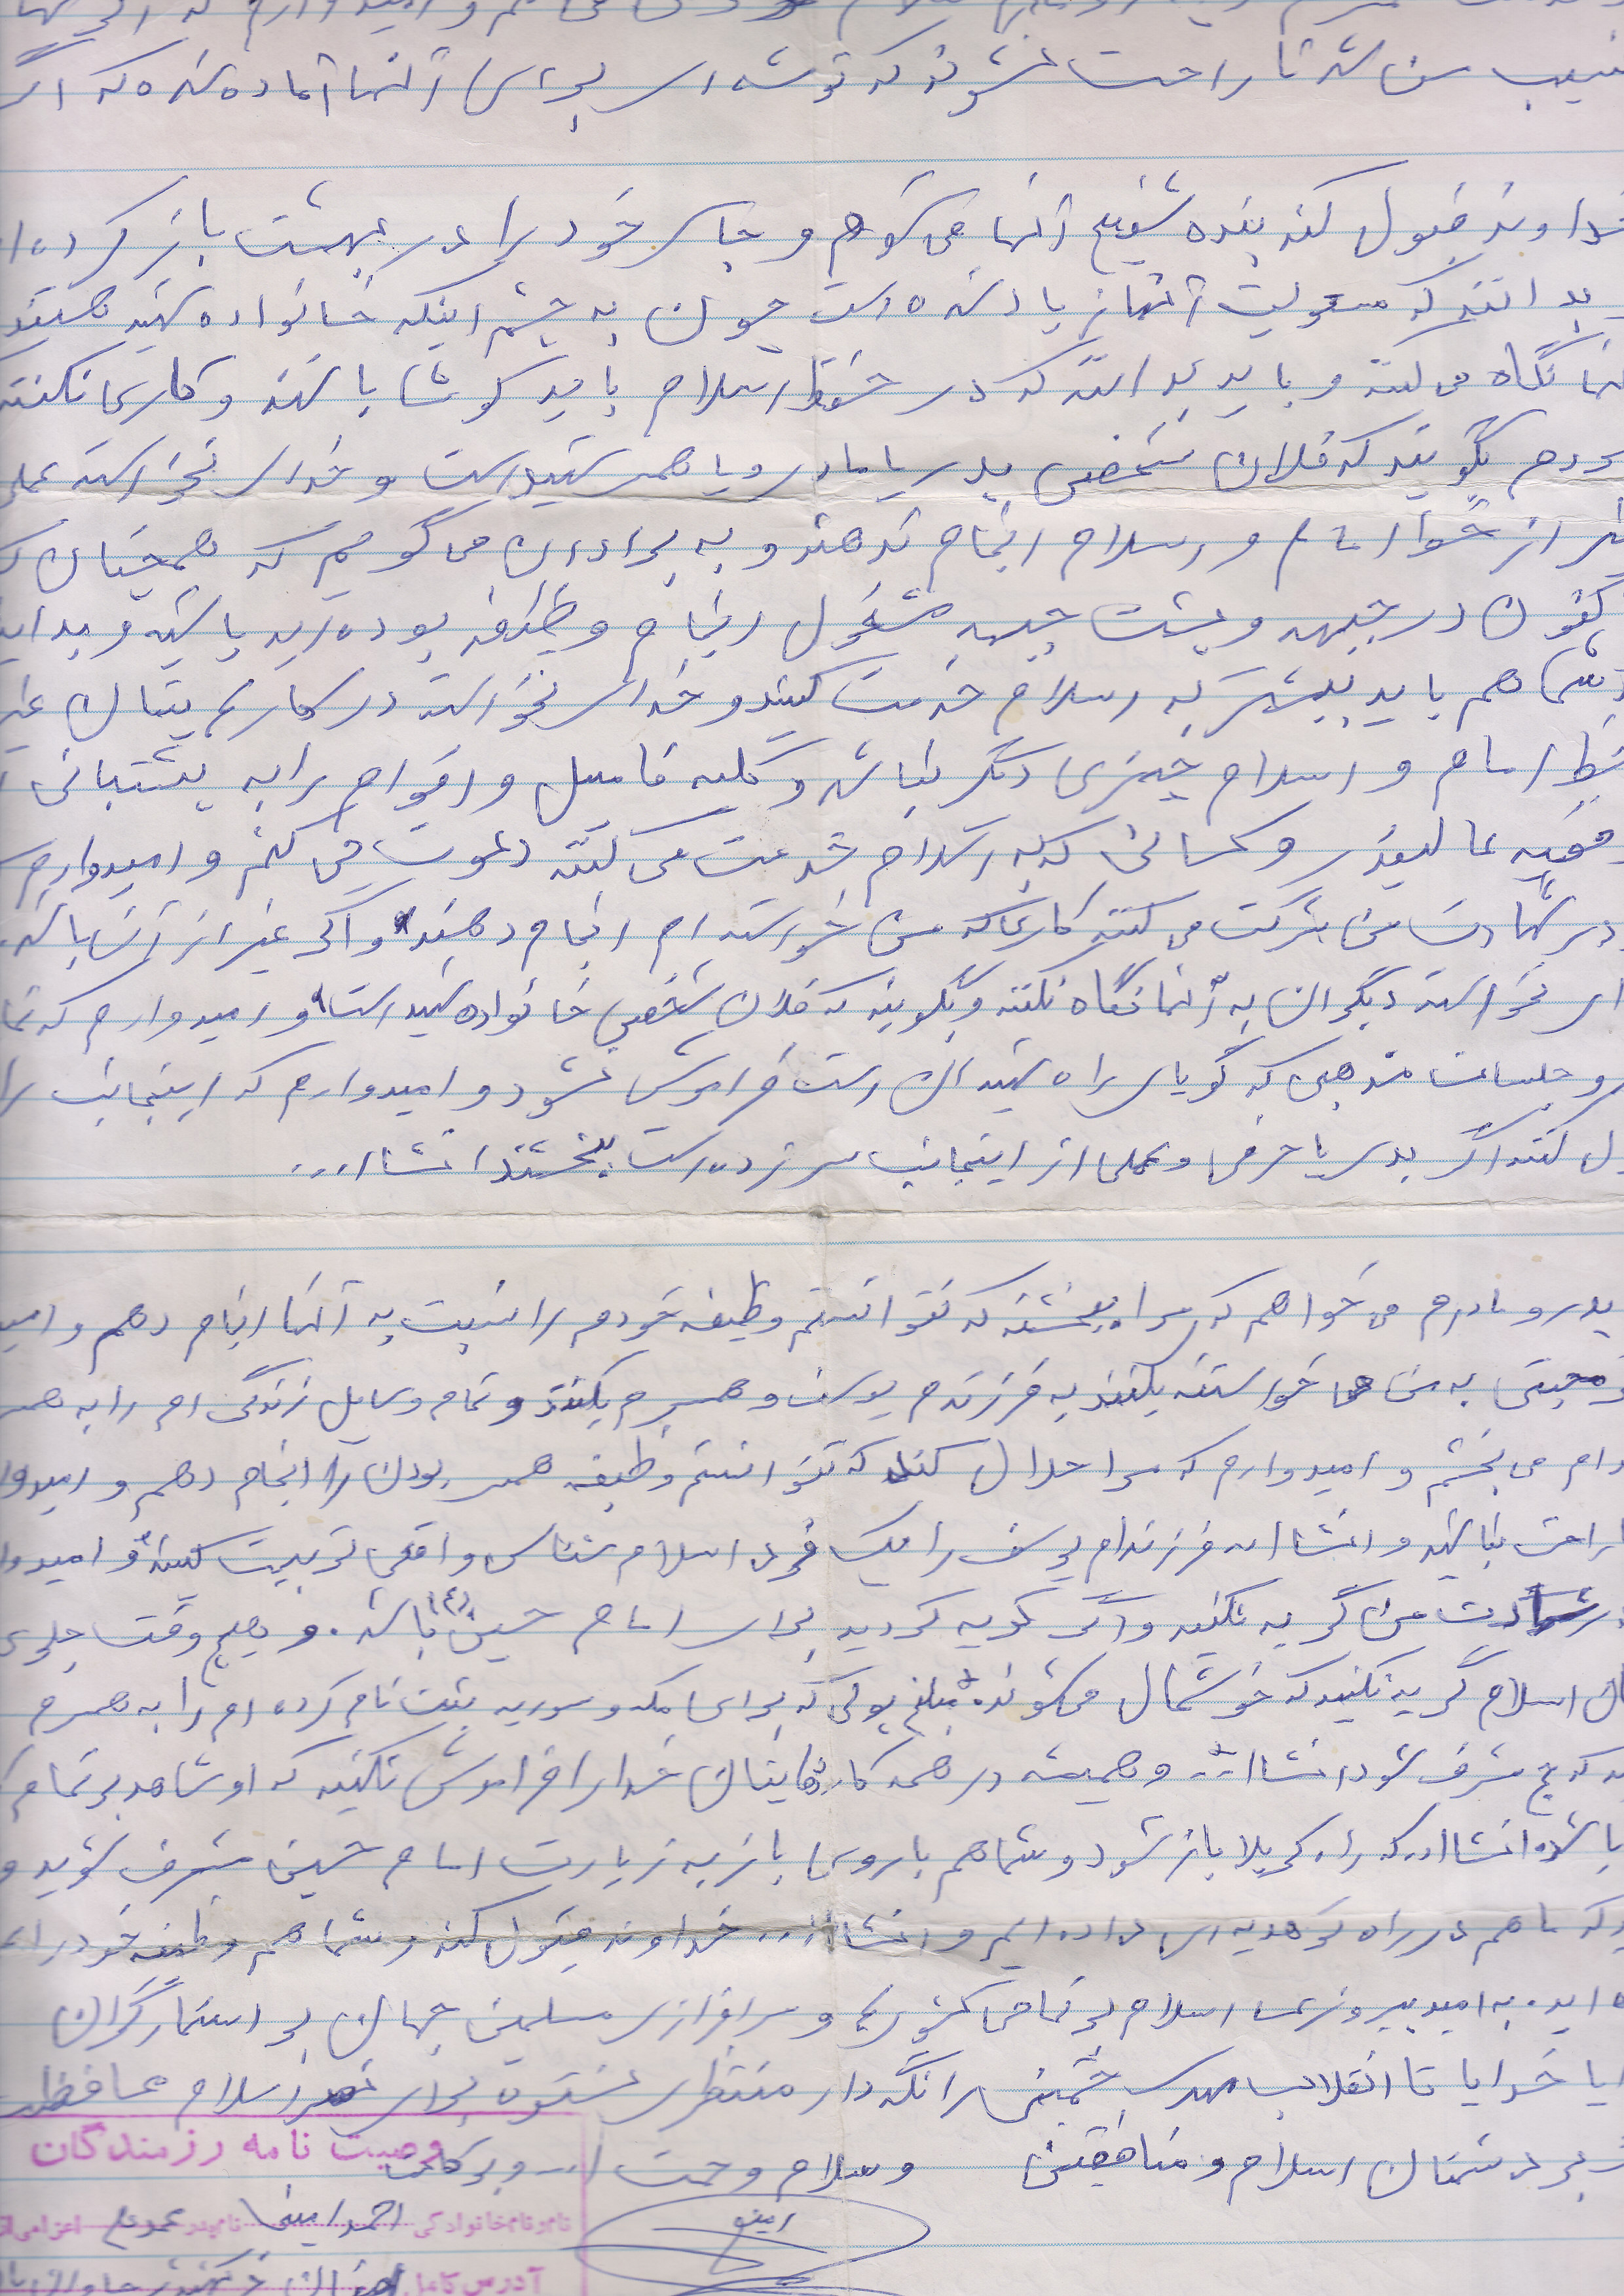 نصیب من شد ناراحت نشوند که توشه ای برای آنها آماده شده که اگر
خداوند قبول کند بنده شفیع آنها می شوم و جای خود را در بهشت باز کرده
بدانند که مسئولیت آنها زیاد شده است چون به چشم اینکه خانواده شهید هستند
نگاه می کنند و باید بدانند که در حفظ اسلام باید کوشا باشند و کاری نکنند
مردم بگویند که فلان شخص پدر یا مادر و یا همسر شهید است و خدای نخواسته عملی
از خط امام و اسلام انجام ندهند و به برادران می گویم که همچنان
کنون در جبهه و پشت جبهه مشغول انجام وظیفه بوده اید باشید و بدانید
شما هم باید بیشتر به اسلام خدمت کنید و خدای نخواسته در کارهایتان
خط امام و اسلام چیزی دیگر نباشد و کلیه فامیل و اقوام را به پشتبانی
فقیه عالیقدر و کسانی که به اسلام خدمت می کنند دعوت می کنم و امیدوارم
در شهادت من شرکت می کنند کارهائی که من خواسته ام انجام دهند و اگر غیر از آن باشد
نخواسته دیگران به آنها نگاه نکنند و بگویند که فلان شخص خانواده شهید است و امیدوارم که
و جلسات مذهبی که گویای راه شهیدان است فراموش نشود و امیدوارم که اینجانب را
کنند اگر بدی یا حرفی و عملی از اینجانب سر زده است ببخشند انشاا...
پدر و مادرم می خواهم که مرا ببخشند که نتوانستم وظیفه خودم را نسبت به آنها انجام دهم و
محبتی به من خواستند بکنند به فرزندم یوسف و همسرم بکنند و تمام وسایل زندگی ام را به
می بخشم و امیدوارم که مرا حلال کند که نتوانستم وظیفه همسر بودن را انجام دهم و
ناراحت نباشید و انشاا.. فرزندم یوسف را یک فردی اسلام شناس واقعی تربیت کنید و
شهادت من گریه نکنید و اگر گریه کردید برای امام حسین (ع) باشد. و هیچ وقت جلوی
اسلام گریه نکنید که خوشحال می شوند. مبلغ پولی که برای مکه و سوریه ثبت نام کرده ام را به همسرم
که حج مشرف شود انشاا... و همیشه در همه کارهایتان خدا را فراموش نکنید که او شاهد بر تمام
باشد انشاا.. که راه کربلا باز شود و شما هم با روی باز به زیارت امام حسین مشرف شوید و
که ما هم در راه هدیه ای داده ایم و انشاا... خداوند قبول کند و شما هم وظیفه خود را
اید. به امید پیروزی اسلام بر تمامی کشورها و سرافرازی مسلمین جهان بر استمارگران
خدایا خدایا تا انقلاب مهدی خمینی را نگهدار منتظری نستوه برای اسلام محافظت
بر دشمنان اسلام و منافقین والسلام و رحمت ا... و برکاته
وصیت نامه رزمندگان
نام و نام خانوادگی احمد امینی نام پدر اعزامی از
آدرس کامل
امینی